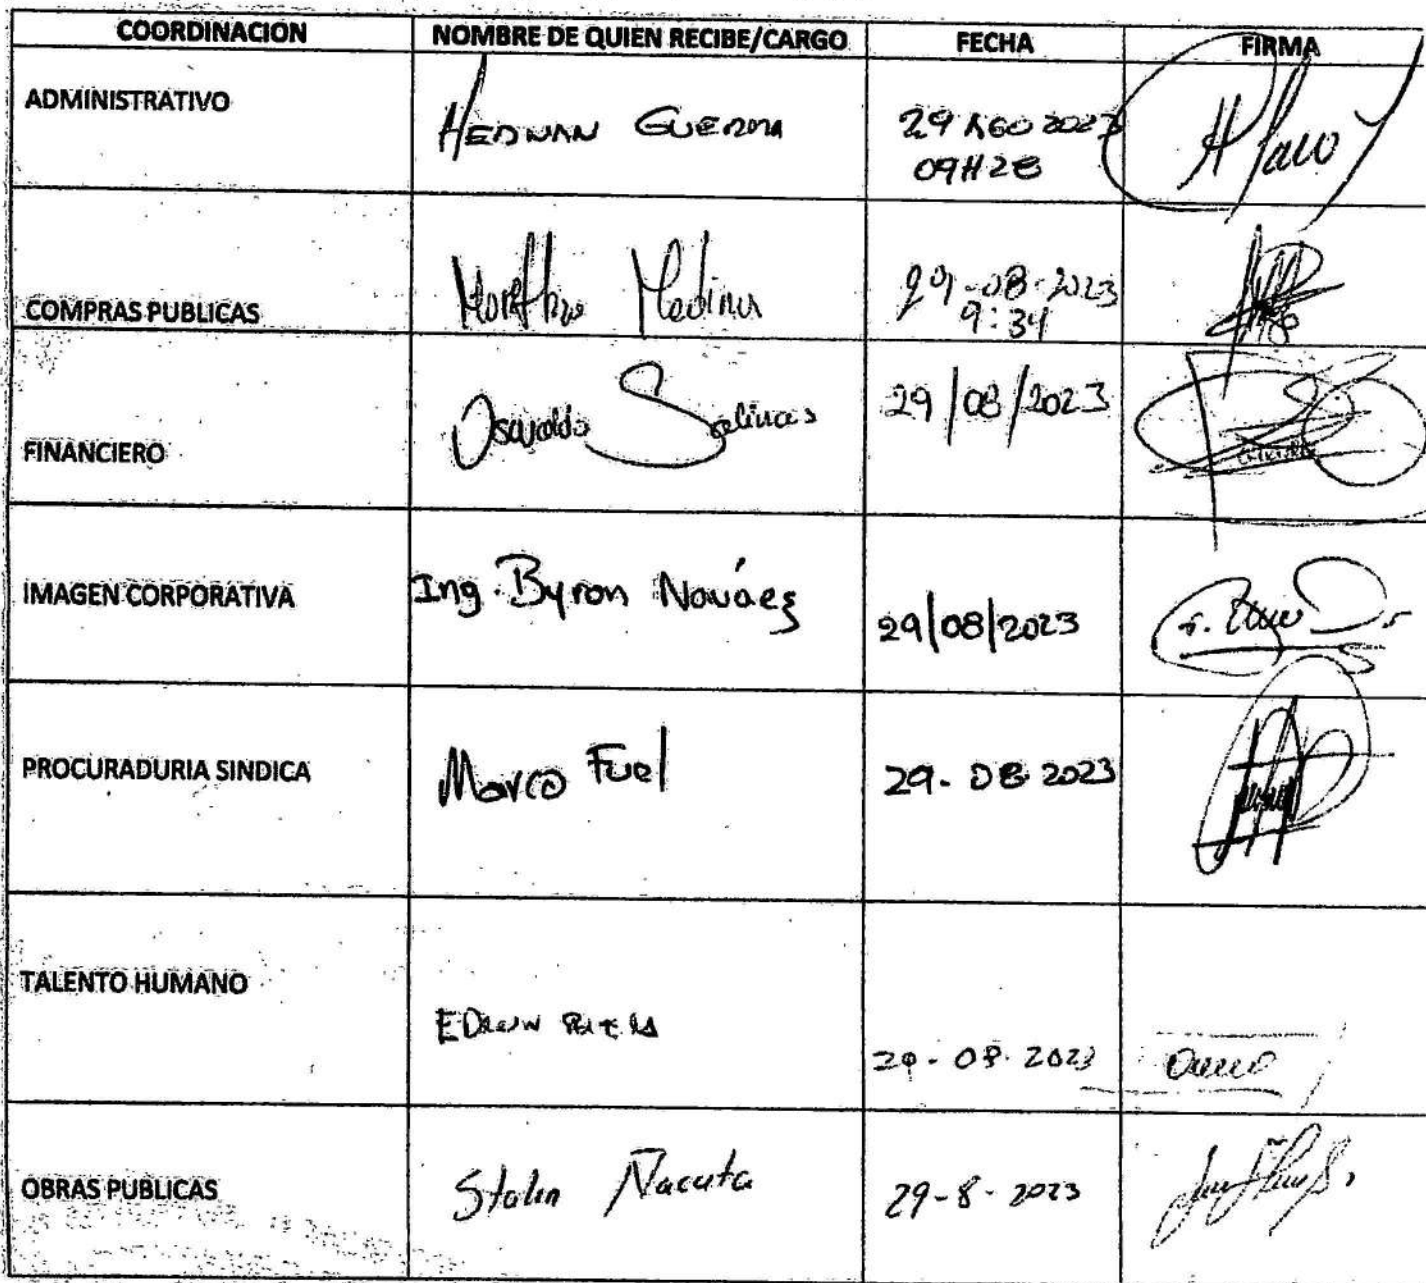 COORDINACION NOMBRE DE QUIEN RECIBE/CARGO FECHA FIRMA
ADMINISTRATIVO HERNAN GUERRA 29 AGO 2023
09H28
COMPRAS PUBLICAS Medina 29-08-2023
9:34
FINANCIERO Osvaldo Salinas 29/08/2023
IMAGEN CORPORATIVA Ing. Byron Nováez 29/08/2023
PROCURADURIA SINDICA Marco Fuel 29-08 2023
TALENTO HUMANO EDWIN 29-08-2023
OBRAS PUBLICAS Stalin Ñacata 29-8-2023